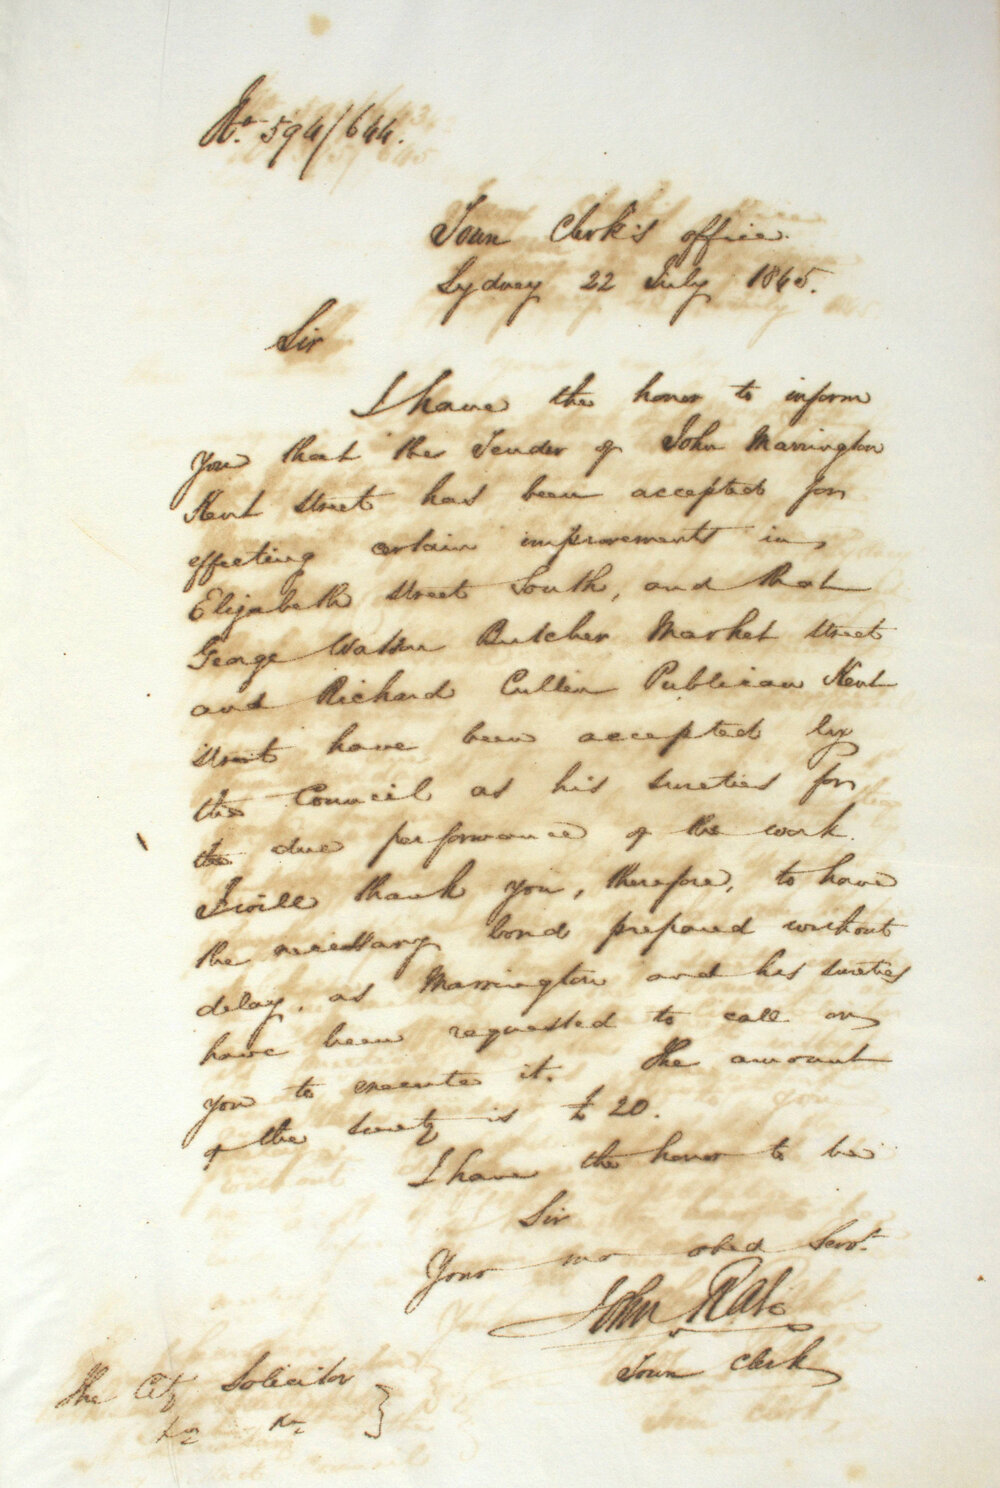 No. 594/644.
Town Clerk's office.
Sydney 22 July 1845.
Sir
I have the honor to inform
you that the Tender of John Marrington
Kent Street has been accepted for
effecting certain improvements in
Elizabeth Street South, and that
George Watson Butcher Market Street
and Richard Cullen Publican Kent
Street have been accepted by
the Council as his sureties for
the due performance of the work.
I will thank you, therefore, to have
the necessary bond prepared without
delay. as Marrington and his sureties
have been requested to call on
you to execute it. The amount
of the surety is £20.
I have the honor to be
Sir
Your mo obed Servt.
John Rae
Town Clerk
The City Solicitor